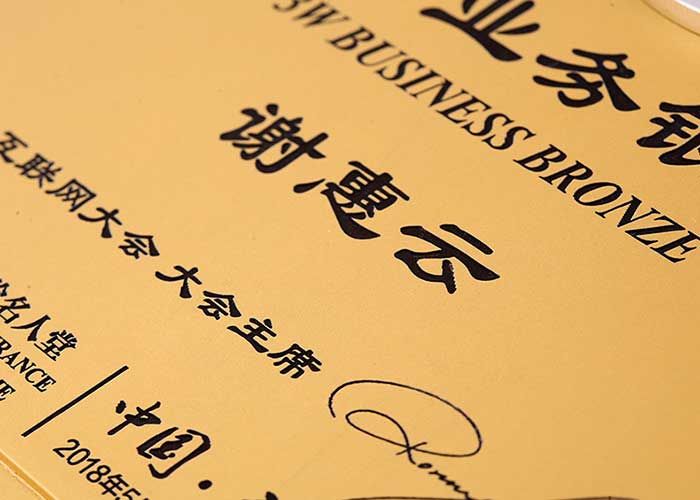 业务
3W BUSINESS BRONZE
谢惠云
互联网大会 大会主席
名人堂
RANCE
中国·
2018年5